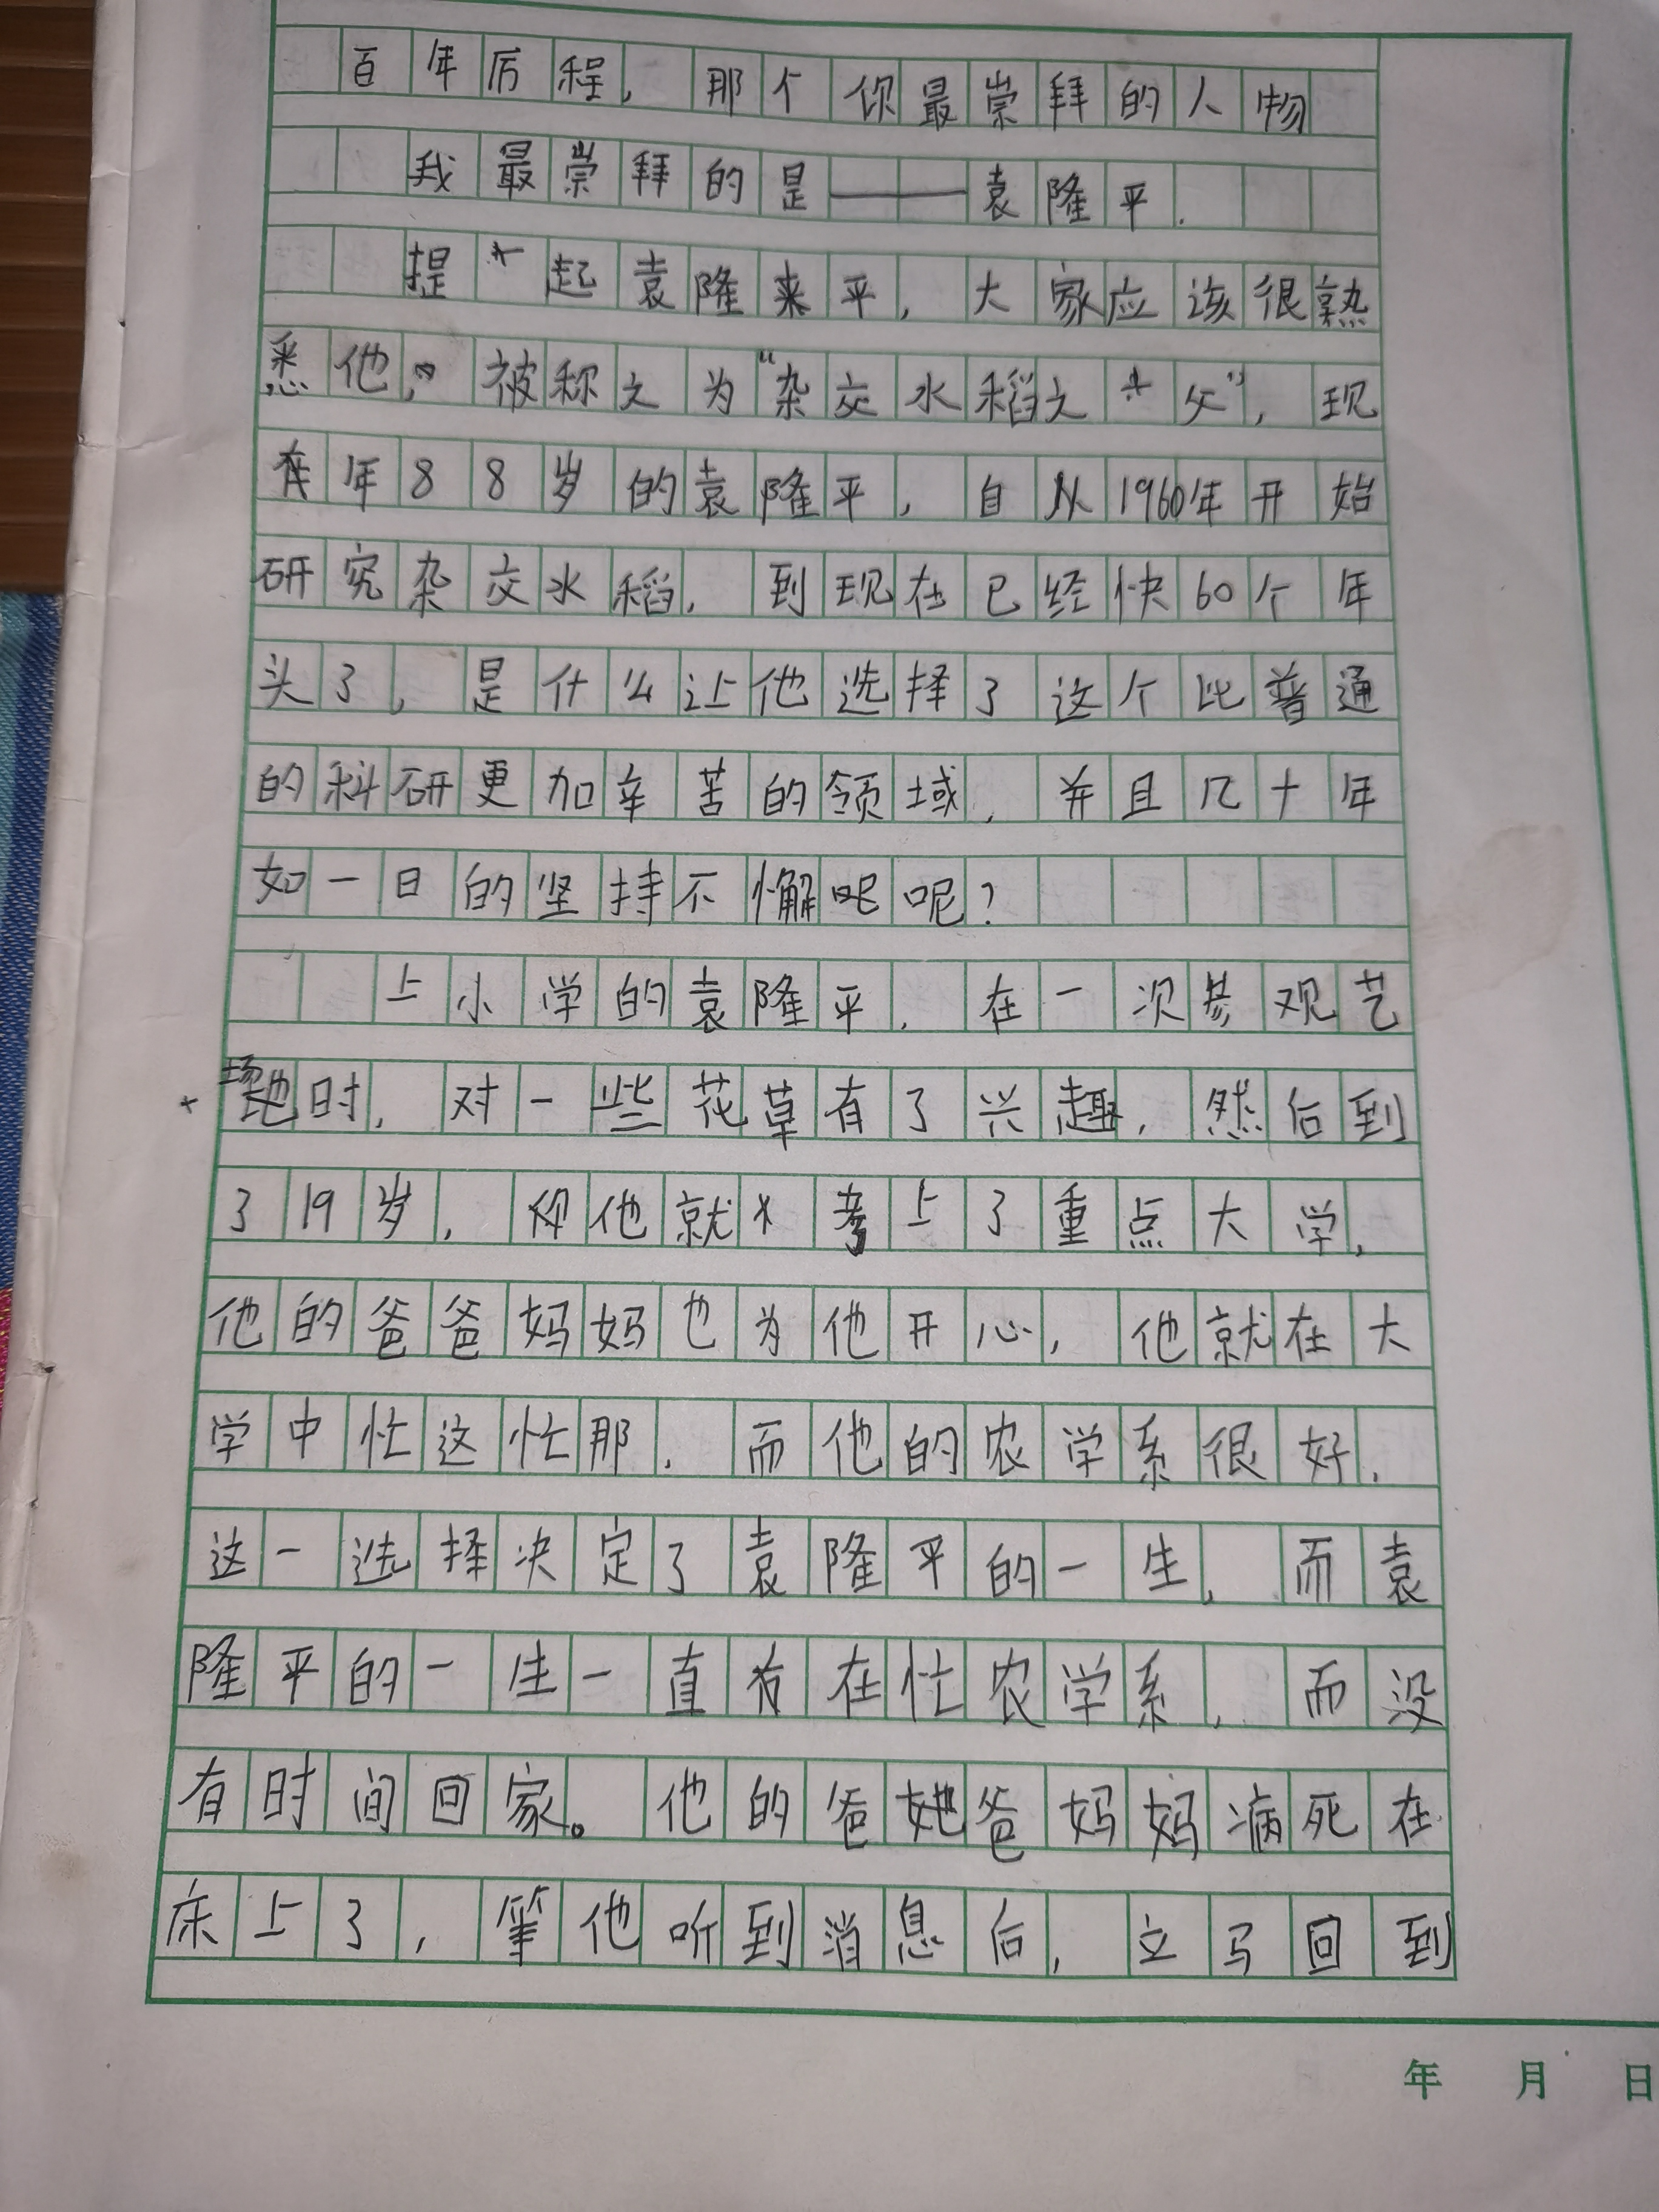 百年历程，那个你最崇拜的人物
我最崇拜的是——袁隆平.
提起袁隆来平，大家应该很熟
悉他，被称之为“杂交水稻之父”，现
在年88岁的袁隆平，自从1960年开始
研究杂交水稻，到现在已经快60个年
头了，是什么让他选择了这个比普通
的科研更加辛苦的领域，并且几十年
如一日的坚持不懈呢？
上小学的袁隆平，在一次参观艺
场地时，对一些花草有了兴趣，然后到
了19岁，他就考上了重点大学，
他的爸爸妈妈也为他开心，他就在大
学中忙这忙那，而他的农学系很好，
这一选择决定了袁隆平的一生，而袁
隆平的一生一直在忙农学系，而没
有时间回家。他的爸爸妈妈病死在
床上了，等他听到消息后，立马回到
年 月 日